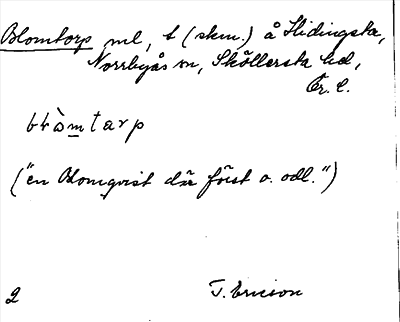 Blomtorp ml, t (skm.) å Hidingsta,
Norrbyås sn, Sköllersta hd,
Ör. l.
blòmtarp
("en Blomqvist där först o. odl.")
2 T. Ericson